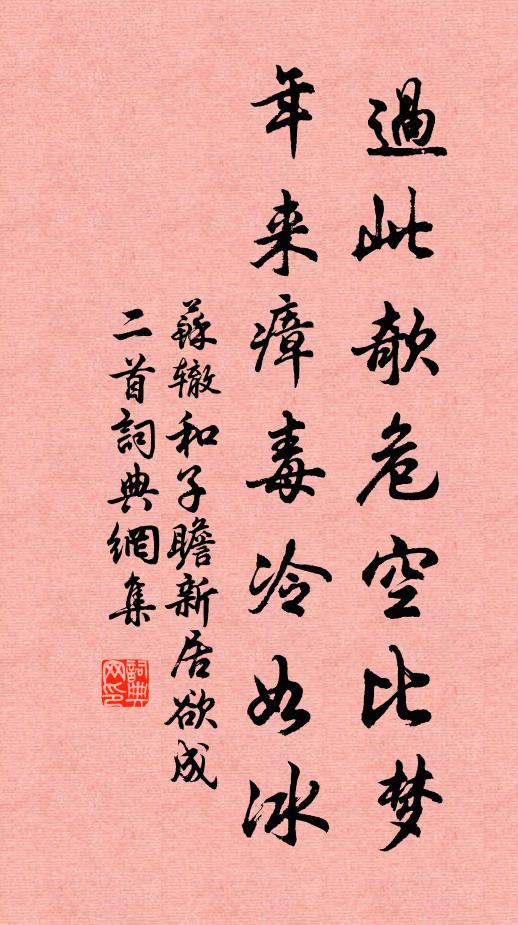 過此欹危空比梦
年来瘴毒冷如冰
蘇辙和子瞻新居欲成
二首詞典網集
詞典
网印